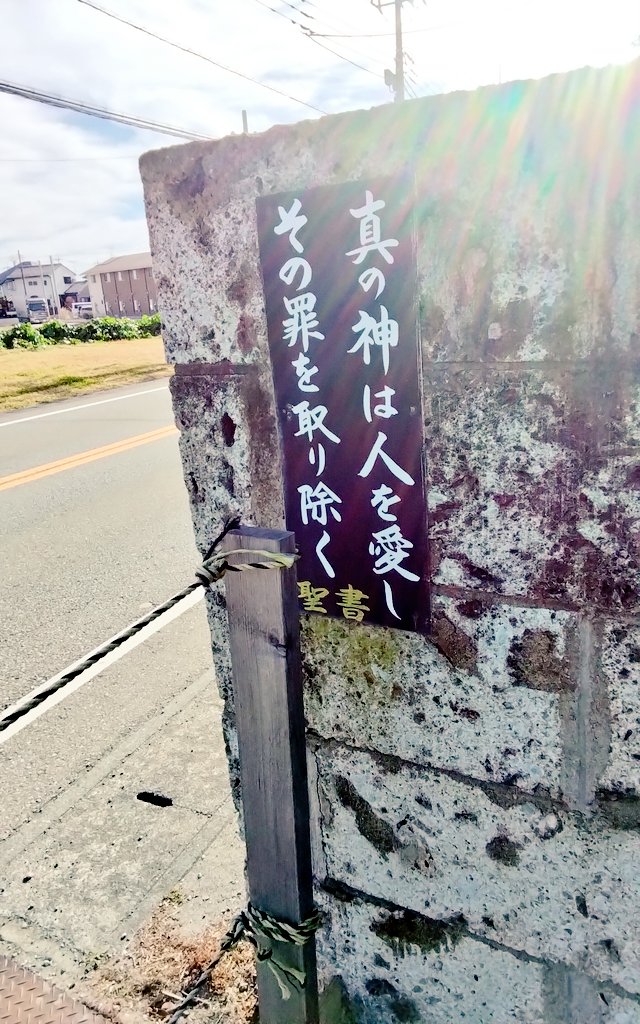 真の神は人を愛し
その罪を取り除く
聖書